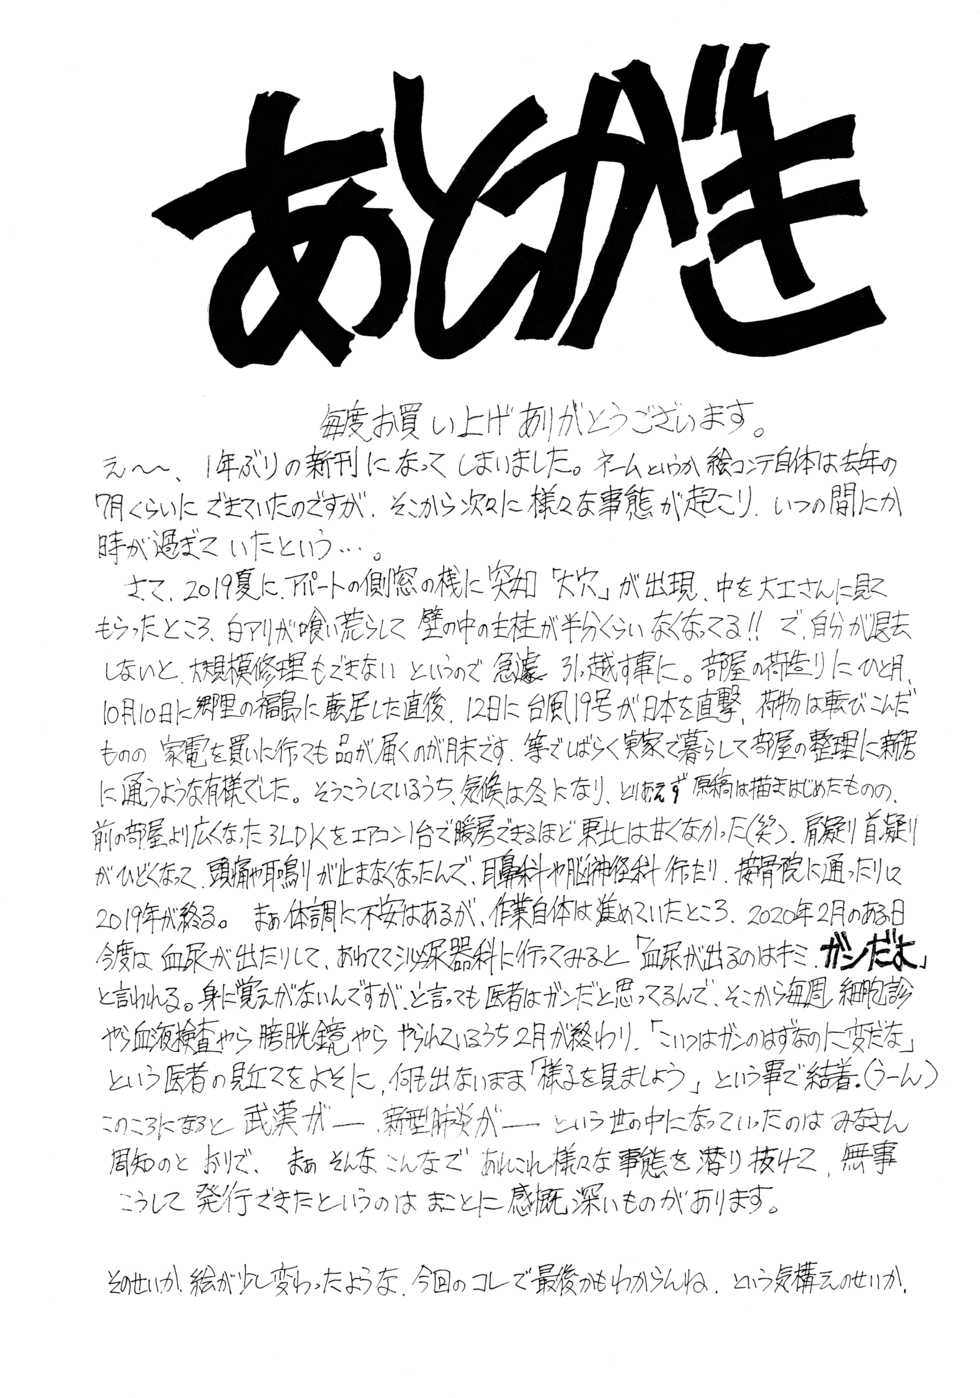 あとがき
毎度お買い上げありがとうございます。
え〜〜、1年ぶりの新刊になってしまいました。ネームというか絵コンテ自体は去年の
7月くらいにできていたのですが、そこから次々に様々な事態が起こり、いつの間にか
時が過ぎていたという…。
さて、2019夏に、アパートの側窓の桟に突如「大穴」が出現、中を大工さんに見て
もらったところ、白アリが喰い荒らして壁の中の主柱が半分くらいなくなってる!!で、自分が退去
しないと、大規模修理もできないというので急遽引っ越す事に。部屋の荷造りにひと月、
10月10日に郷里の福島に転居した直後、12日に台風19号が日本を直撃、荷物は転びこんだ
ものの家電を買いに行っても品が届くのが月末です、等でしばらく実家で暮らして部屋の整理に新居
に通うような有様でした。そうこうしているうち、気候は冬になり、とりあえず原稿は描きはじめたものの、
前の部屋より広くなった3LDKをエアコン1台で暖房できるほど東北は甘くなかった(笑)、肩凝り首凝り
がひどくなって、頭痛や耳鳴りが止まなくなったんで、耳鼻科や脳神経科行ったり、接骨院に通ったりして
2019年が終る。まぁ体調に不安はあるが、作業自体は進めていたところ、2020年2月のある日
今度は血尿が出たりして、あわてて泌尿器科に行ってみると「血尿が出るのはキミ、ガンだよ」
と言われる。身に覚えがないんですが、と言っても医者はガンだと思ってるんで、そこから毎週細胞診
やら血液検査やら膀胱鏡やらやられているうち2月が終わり、「こいつはガンのはずなのに変だな」
という医者の見立てをよそに、何も出ないまま「様子を見ましょう」という事で結着。(うーん)
このころになると武漢が── 新型肺炎が── という世の中になっていったのはみなさん
周知のとおりで、まぁそんなこんなであれこれ様々な事態を潜り抜けて、無事
こうして発行できたというのはまことに感慨深いものがあります。
そのせいか、絵が少し変わったような、今回のコレで最後かもわからんね、という気構えのせいか、